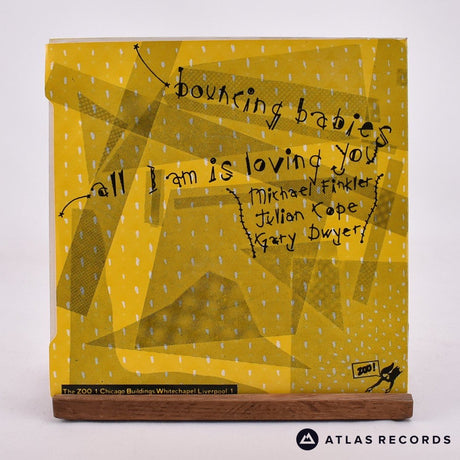 bouncing babies
all I am is loving you
Michael Finkler
Julian Kope
Gary Dwyer
ZOO!
The ZOO 1 Chicago Buildings Whitechapel Liverpool 1
ATLAS RECORDS